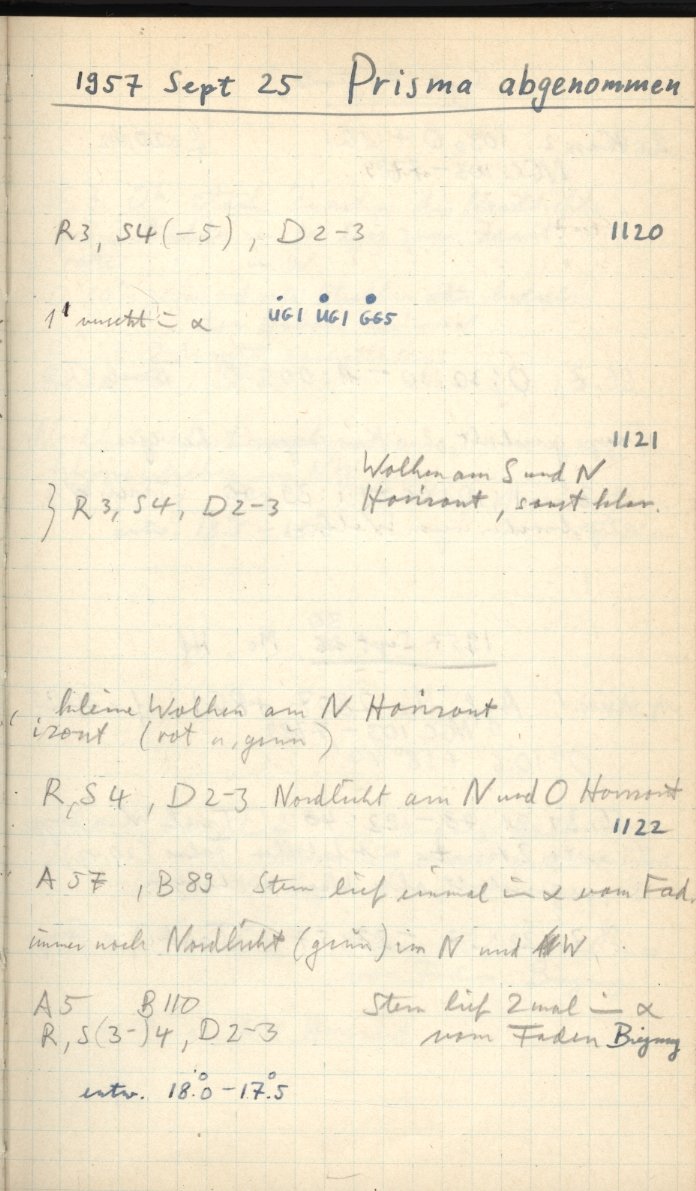 1957 Sept 25 Prisma abgenommen
R3, S4(-5), D2-3 1120
1' versetzt in α UG1 UG1 GG5
1121
Wolken am S und N
} R3, S4, D2-3 Horizont, sonst klar.
kleine Wolken am N Horizont
izont (rot u. grün)
R, S4, D2-3 Nordlicht am N und O Horizont
1122
A 57, B 89 Stern lief einmal in α vom Fad.
immer noch Nordlicht (grün) im N und W.
A5 B110 Stern lief 2mal in α
R, S(3-)4, D2-3 vom Faden Biegung
entw. 18°.0 - 17°.5